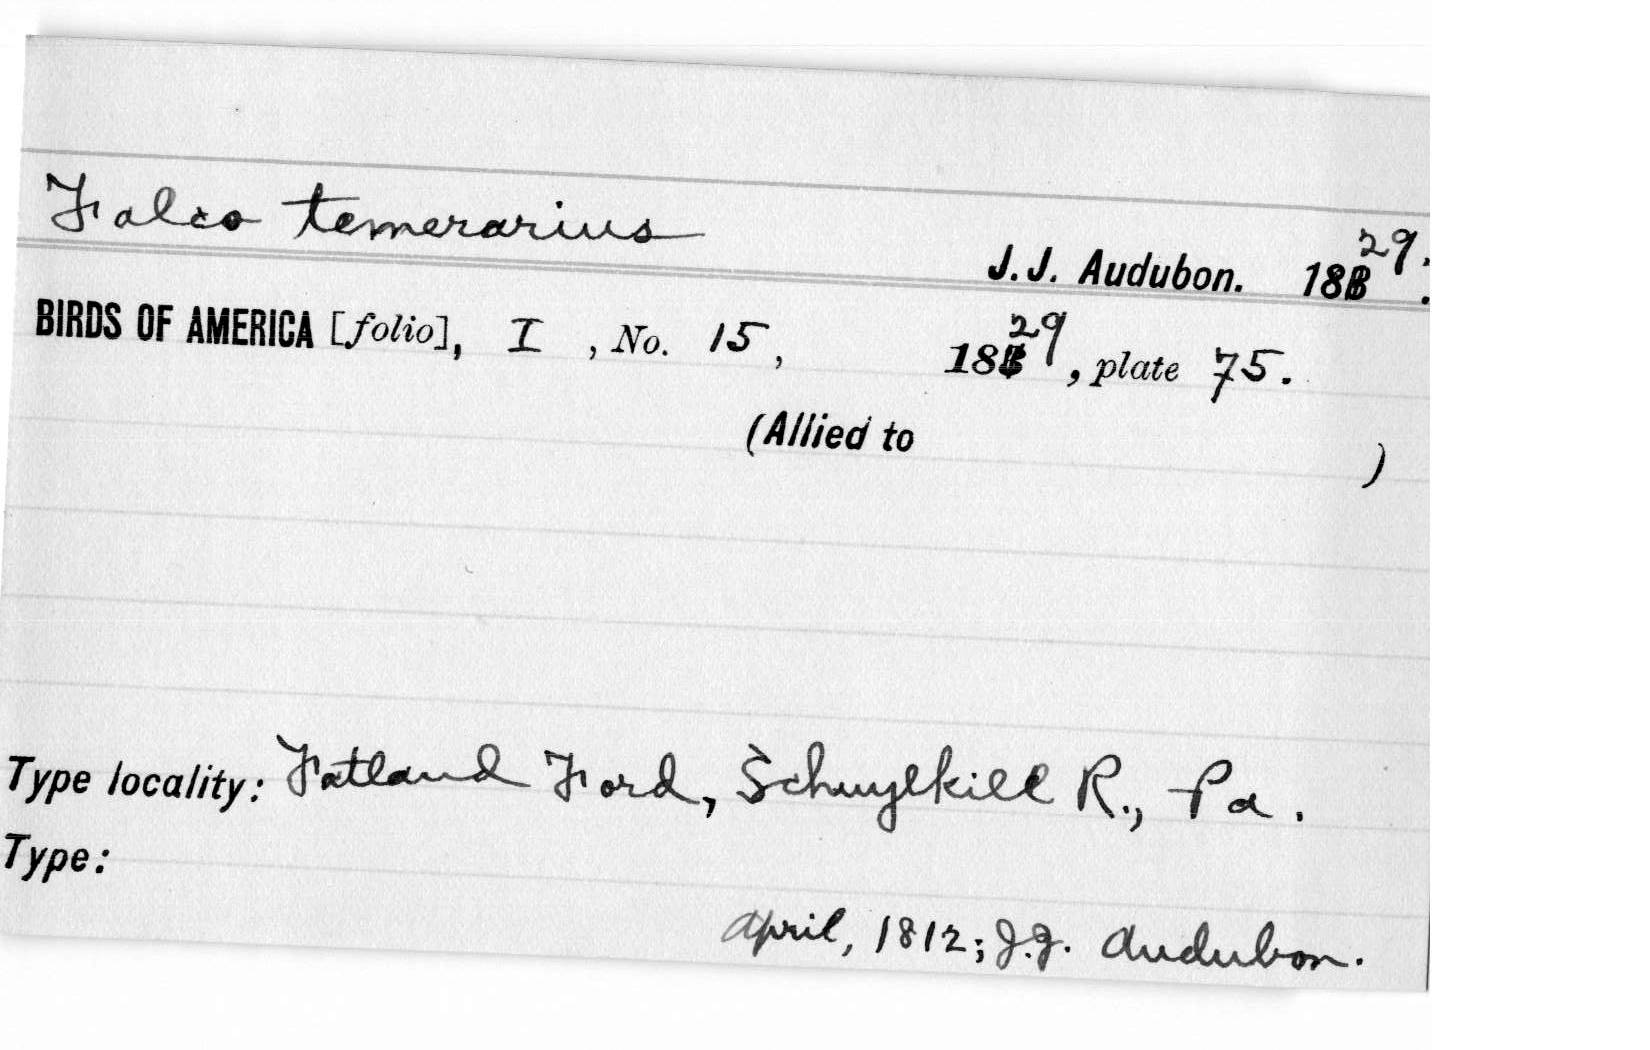 Falco temerarius
J. J. Audubon. 1829.
BIRDS OF AMERICA [folio], I , No. 15, 1829, plate 75.
(Allied to )
Type locality: Fatland Ford, Schuylkill R., Pa.
Type:
April, 1812; J.J. Audubon.